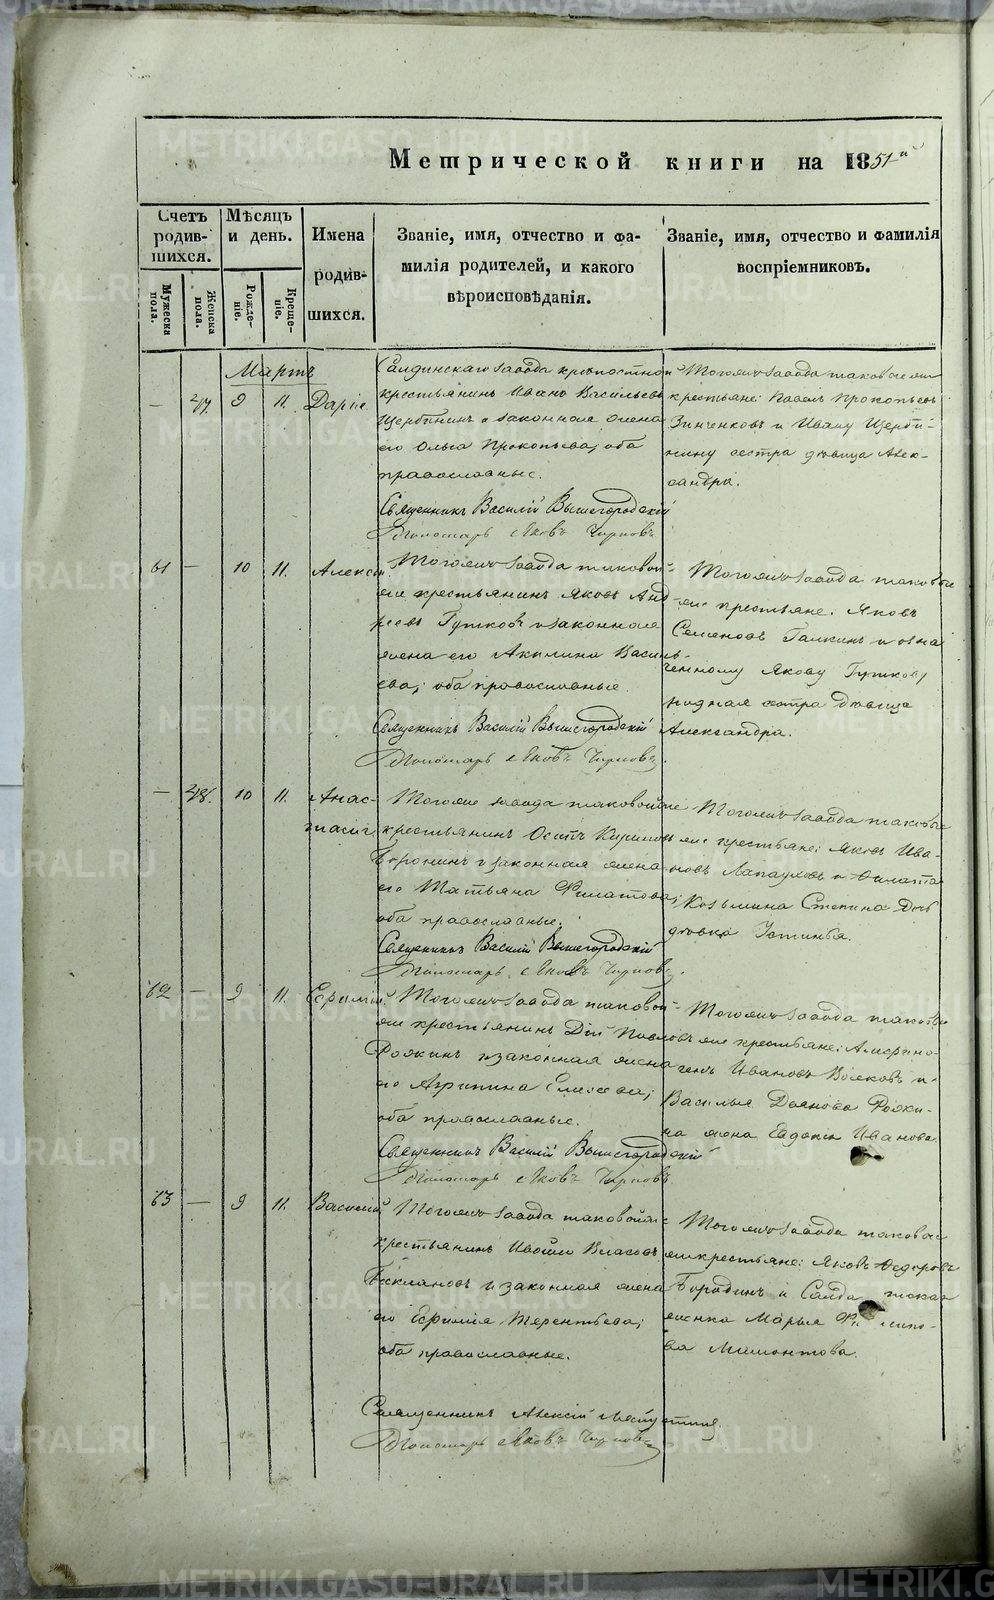 Метрической книги на 1851й
Счетъ родившихся.
Мѣсяцъ и день.
Имена родившихся.
Званіе, имя, отчество и фамилія родителей, и какого вѣроисповѣданія.
Званіе, имя, отчество и фамилія воспріемниковъ.
Мужеска пола.
Женска пола.
Рожденіе.
Крещеніе.
Мартъ
— 47. 9 11. Дарія
Салдинскаго завода крѣпостной
крестьянинъ Иванъ Васильевъ
Щербининъ и законная жена
его Ольга Прокопьева; оба
православные.
Священникъ Василій Вышегородскій
Пономарь Яковъ
Тогожъ завода таковые же
крестьяне: Павелъ Прокопьевъ
Зинченковъ и Ивану Щерби-
нину сестра дѣвица Алек-
сандра.
61 — 10 11. Алексій
Тогожъ завода таковой-
же крестьянинъ Яковъ Анд-
реевъ и законная
жена его Акилина Василь-
ева; оба православные.
Священникъ Василій Вышегородскій
Пономарь Яковъ
Тогожъ завода таковые
же крестьяне: Яковъ
Семеновъ Галкинъ и озна-
ченному Якову
родная сестра дѣвица
Александра.
— 48. 10 11. Анас-
тасія
Тогоже завода таковой же
крестьянинъ Осипъ Кириловъ
и законная жена
его Татьяна Филатова;
оба православные.
Священникъ Василій Вышегородскій
Пономарь Яковъ
Тогожъ завода таковые
же крестьяне: Яковъ Ива-
новъ Лапауховъ и Филата
Козьмина Степина дочь
дѣвка Устинья.
62 — 9 11. Ефимій
Тогожъ завода таковой-
же крестьянинъ Дій Павловъ
Рожкинъ и законная жена
его Агрипина Елисеева;
оба православные.
Священникъ Василій Вышегородскій
Пономарь Яковъ
Тогожъ завода таковые
же крестьяне:
Ивановъ Волковъ и
Василья Рожки-
на жена Евдокія Иванова.
63 — 9 11. Василій
Тогожъ завода таковой же
крестьянинъ Власовъ
и законная жена
его Ефимія Терентьева;
оба православные.
Священникъ Алексій
Пономарь Яковъ
Тогожъ завода таковые
же крестьяне: Яковъ Федоровъ
Бородинъ и
женка Марья Филипо-
ва Мамонтова.
METRIKI.GASO-URAL.RU